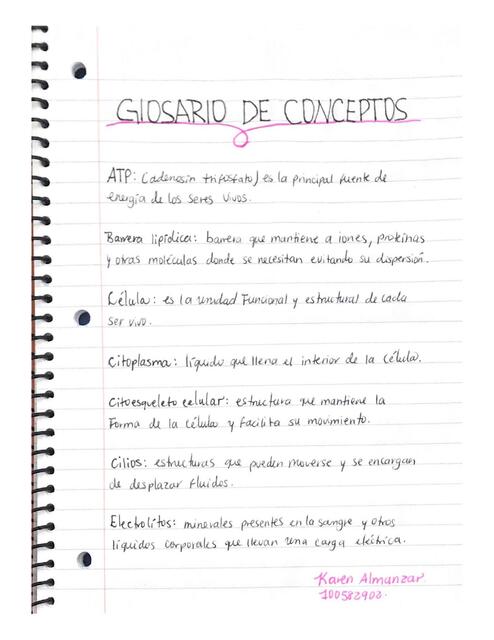 GLOSARIO DE CONCEPTOS
ATP: (adenosin trifosfato) es la principal fuente de
energía de los seres vivos.
Barrera lipídica: barrera que mantiene a iones, proteínas
y otras moléculas donde se necesitan evitando su dispersión.
Célula: es la unidad Funcional y estructural de cada
ser vivo.
Citoplasma: líquido que llena el interior de la célula.
Citoesqueleto celular: estructura que mantiene la
Forma de la célula y facilita su movimiento.
Cilios: estructuras que pueden moverse y se encargan
de desplazar Fluidos.
Electrolitos: minerales presentes en la sangre y otros
líquidos corporales que llevan una carga eléctrica.
Karen Almanzar
100582902.